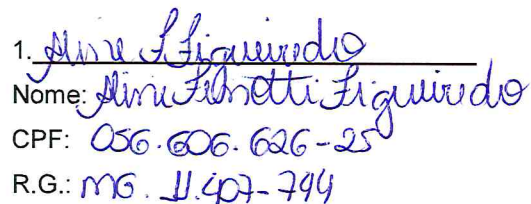 1. Aline F Figueiredo
Nome: Aline Felisetti Figueiredo
CPF: 056.606.626-25
R.G.: MG. 11.407-794